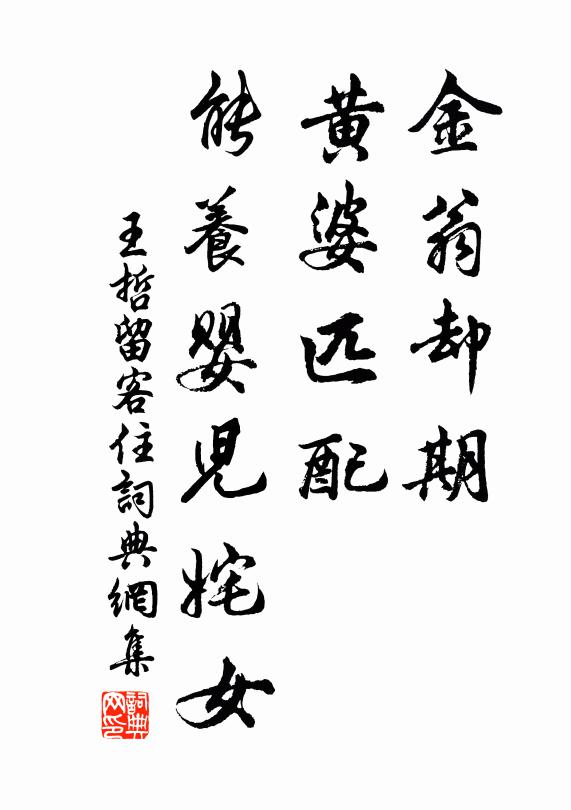 金翁却期
黃婆匹配
能養嬰兒姹女
王哲留客住詞典網集
詞典网印